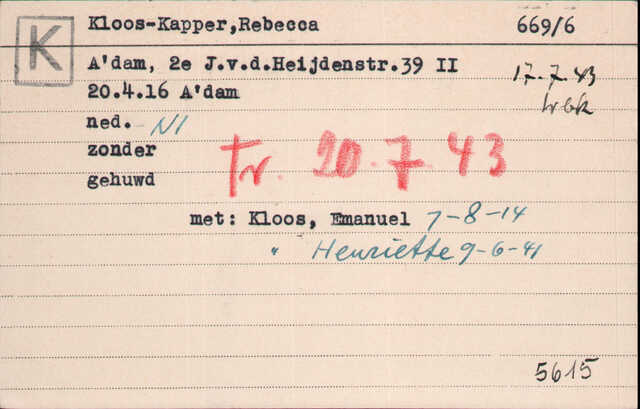 K
Kloos-Kapper,Rebecca 669/6
A'dam, 2e J.v.d.Heijdenstr.39 II 17-7-43
20.4.16 A'dam Wbk
ned. NI
zonder
gehuwd tr. 20-7-43
met: Kloos, Emanuel 7-8-14
" Henriette 9-6-41
5615